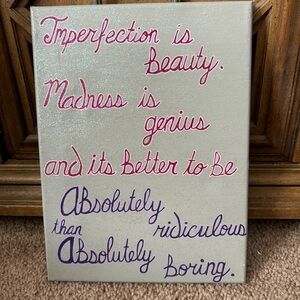 Imperfection is
Beauty.
Madness is
genius
and its Better to Be
Absolutely
ridiculous
than
Absolutely
Boring.